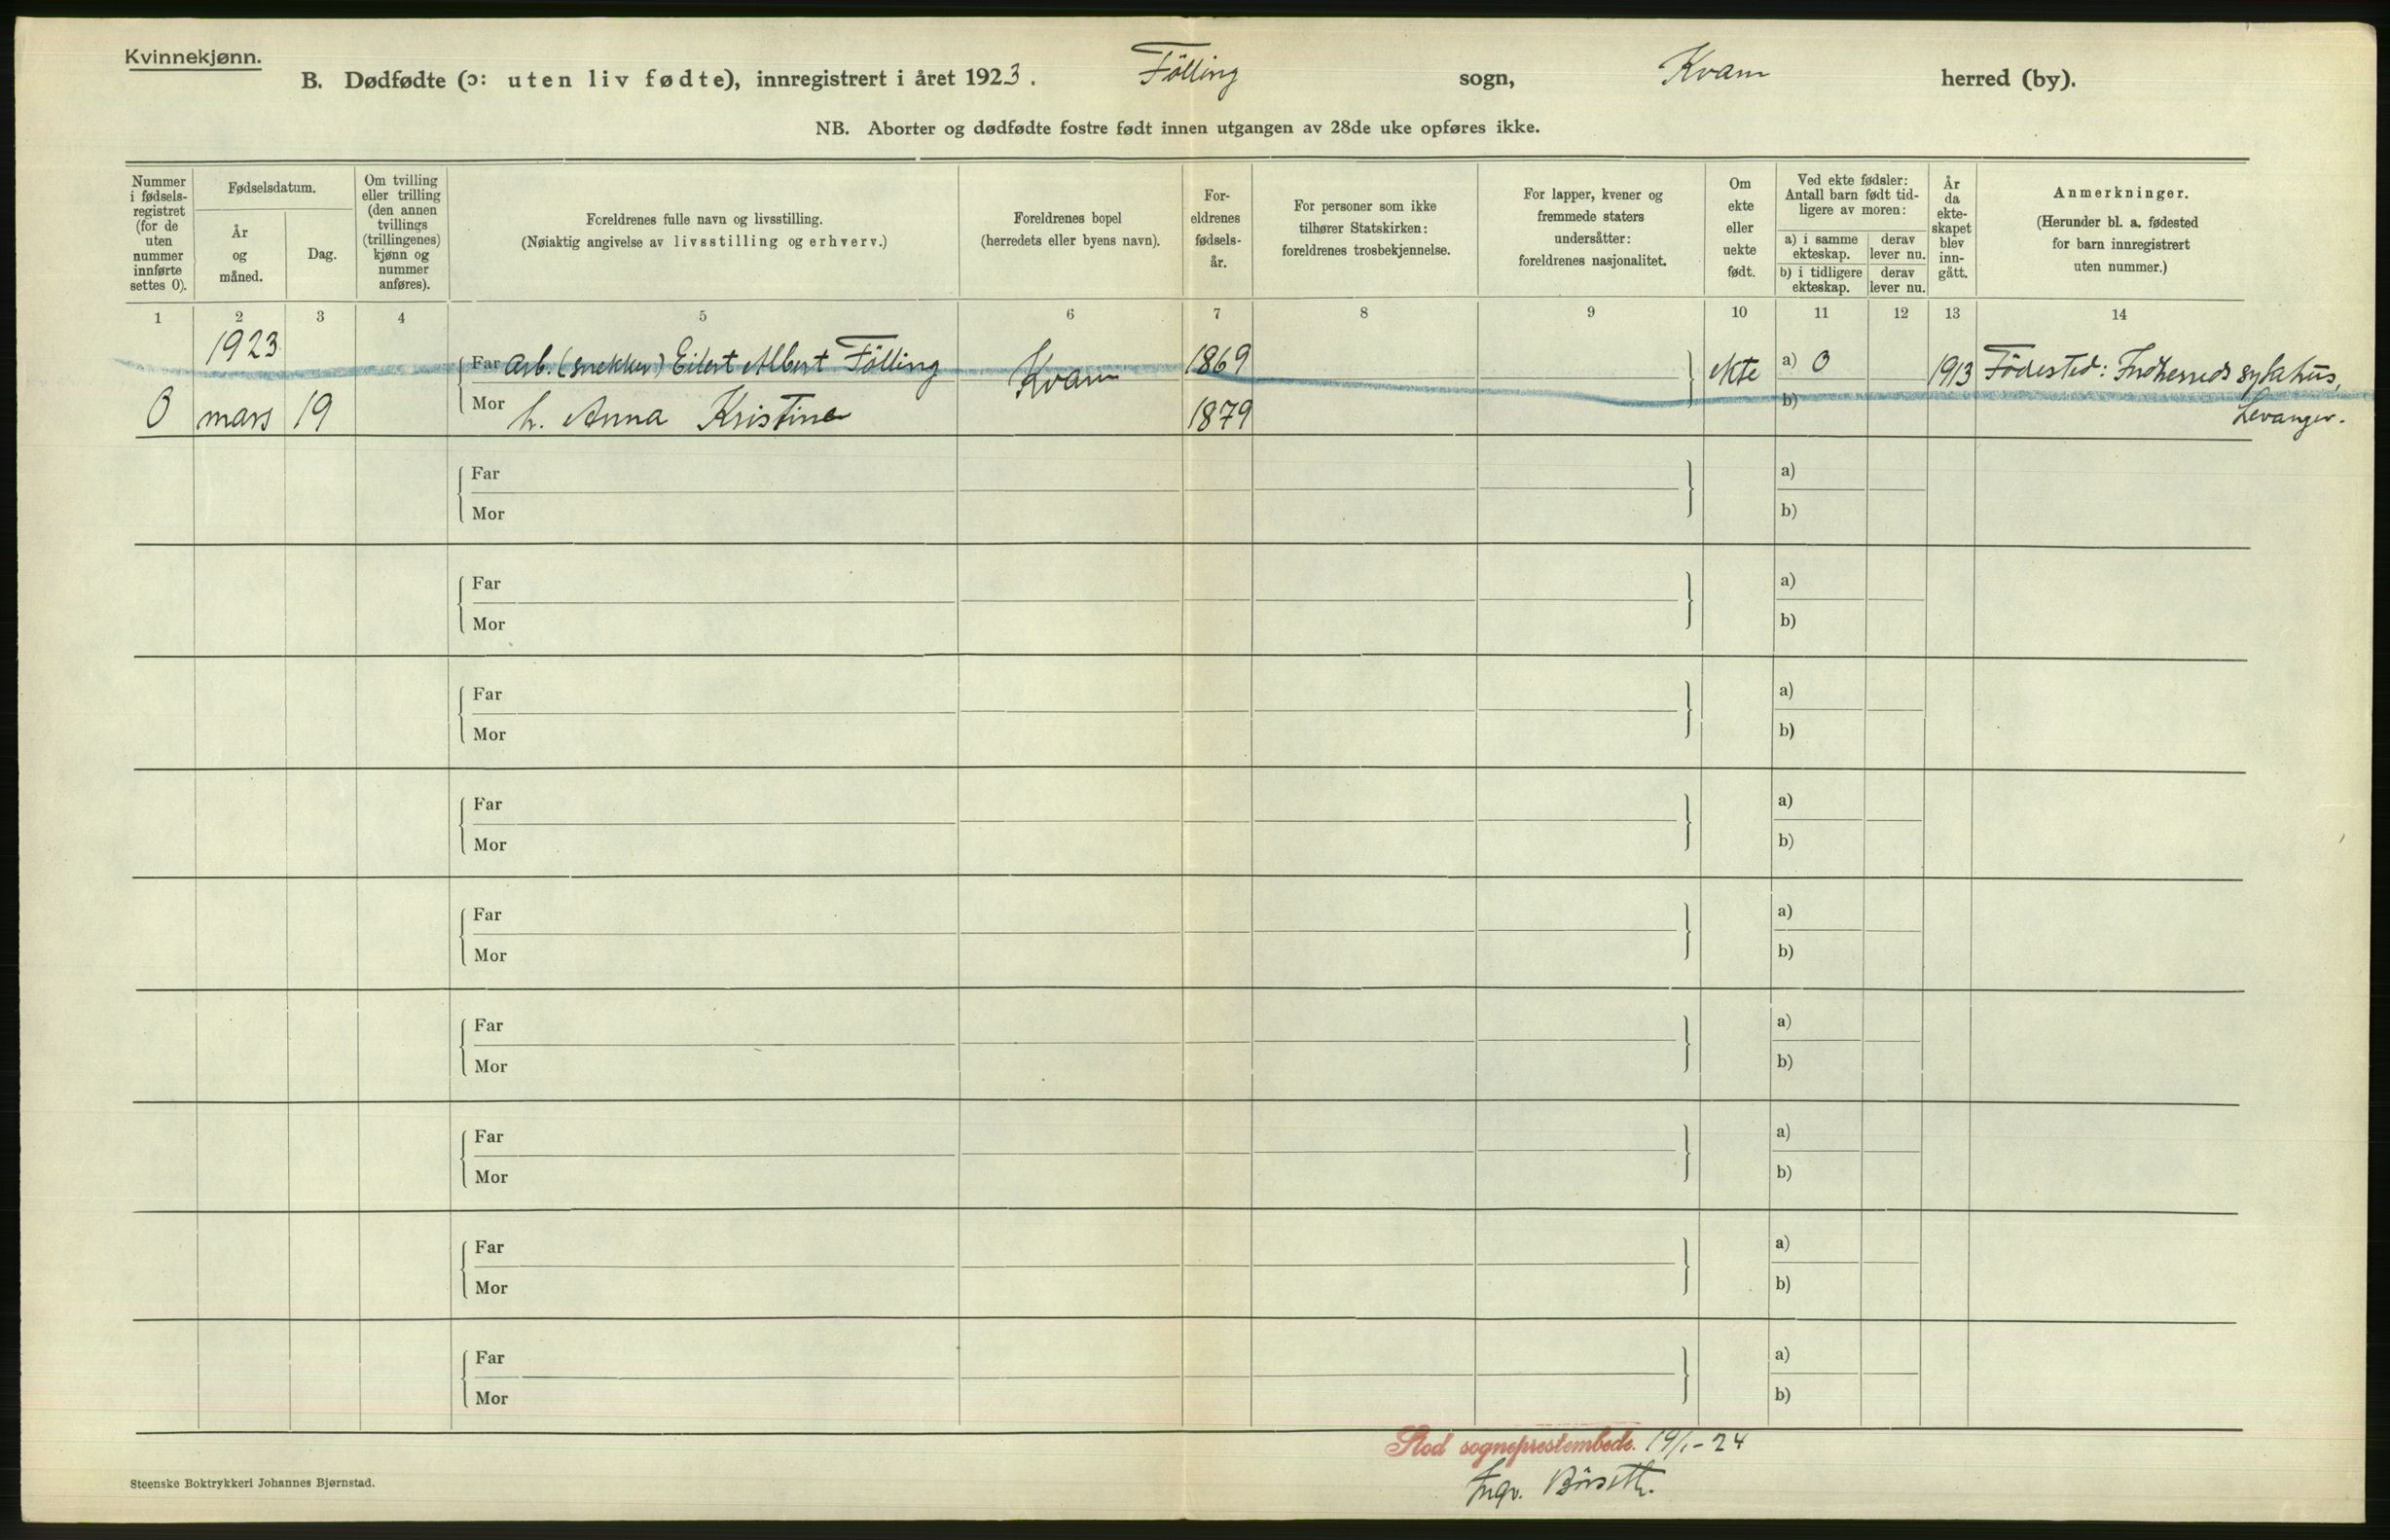 Kvinnekjønn.
B. Dødfødte (ɔ: uten liv fødte), innregistrert i året 1923. Fölling sogn, Kvam herred (by).
NB. Aborter og dødfødte fostre født innen utgangen av 28de uke opføres ikke.
Nummer
i fødsels-
registret
(for de
uten
nummer
innførte
settes 0).
Fødselsdatum.
År
og
måned.
Dag.
Om tvilling
eller trilling
(den annen
tvillings
(trillingenes)
kjønn og
nummer
anføres).
Foreldrenes fulle navn og livsstilling.
(Nøiaktig angivelse av livsstilling og erhverv.)
Foreldrenes bopel
(herredets eller byens navn).
For-
eldrenes
fødsels-
år.
For personer som ikke
tilhører Statskirken:
foreldrenes trosbekjennelse.
For lapper, kvener og
fremmede staters
undersåtter:
foreldrenes nasjonalitet.
Om
ekte
eller
uekte
født.
Ved ekte fødsler:
Antall barn født tid-
ligere av moren:
a) i samme
ekteskap.
derav
lever nu.
b) i tidligere
ekteskap.
derav
lever nu.
År
da
ekte-
skapet
blev
inn-
gått.
Anmerkninger.
(Herunder bl. a. fødested
for barn innregistrert
uten nummer.)
1 2 3 4 5 6 7 8 9 10 11 12 13 14
1923
Far Arb. (snekker) Eilert Albert Fölling Kvam 1869 ekte a) 0 1913 Födested: Indherreds sykehus,
0 mars 19 Mor h. Anna Kristine 1879 b) Levanger.
Far a)
Mor b)
Far a)
Mor b)
Far a)
Mor b)
Far a)
Mor b)
Far a)
Mor b)
Far a)
Mor b)
Far a)
Mor b)
Far a)
Mor b)
Far a)
Mor b)
Stod sogneprestembede. 19/1-24
Ingv. Börseth.
Steenske Boktrykkeri Johannes Bjørnstad.